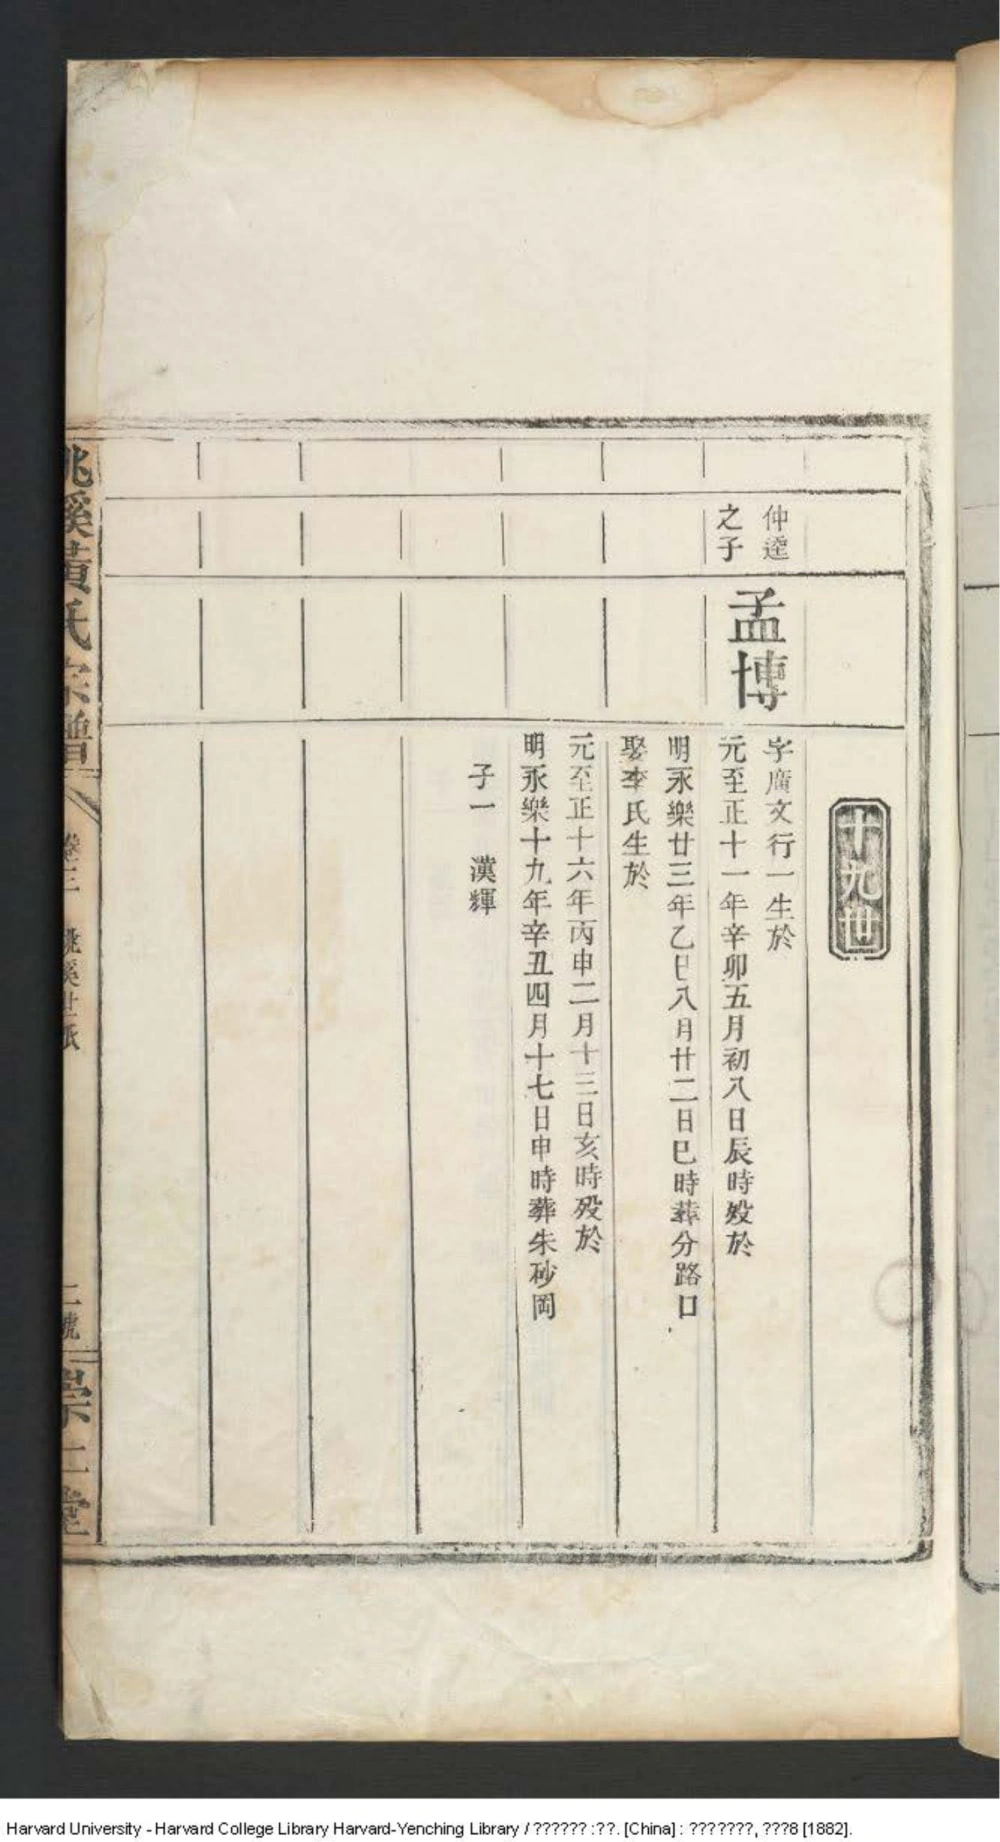 十九世
仲達
之子
孟博
字廣文行一生於
元至正十一年辛卯五月初八日辰時歿於
明永樂廿三年乙巳八月廿二日巳時葬分路口
娶李氏生於
元至正十六年丙申二月十三日亥時歿於
明永樂十九年辛丑四月十七日申時葬朱砂岡
子一　漢輝
姚溪黃氏宗譜
卷三　姚溪世派
二號
崇仁堂
Harvard University - Harvard College Library Harvard-Yenching Library / ?????? :??. [China] : ???????, ???8 [1882].